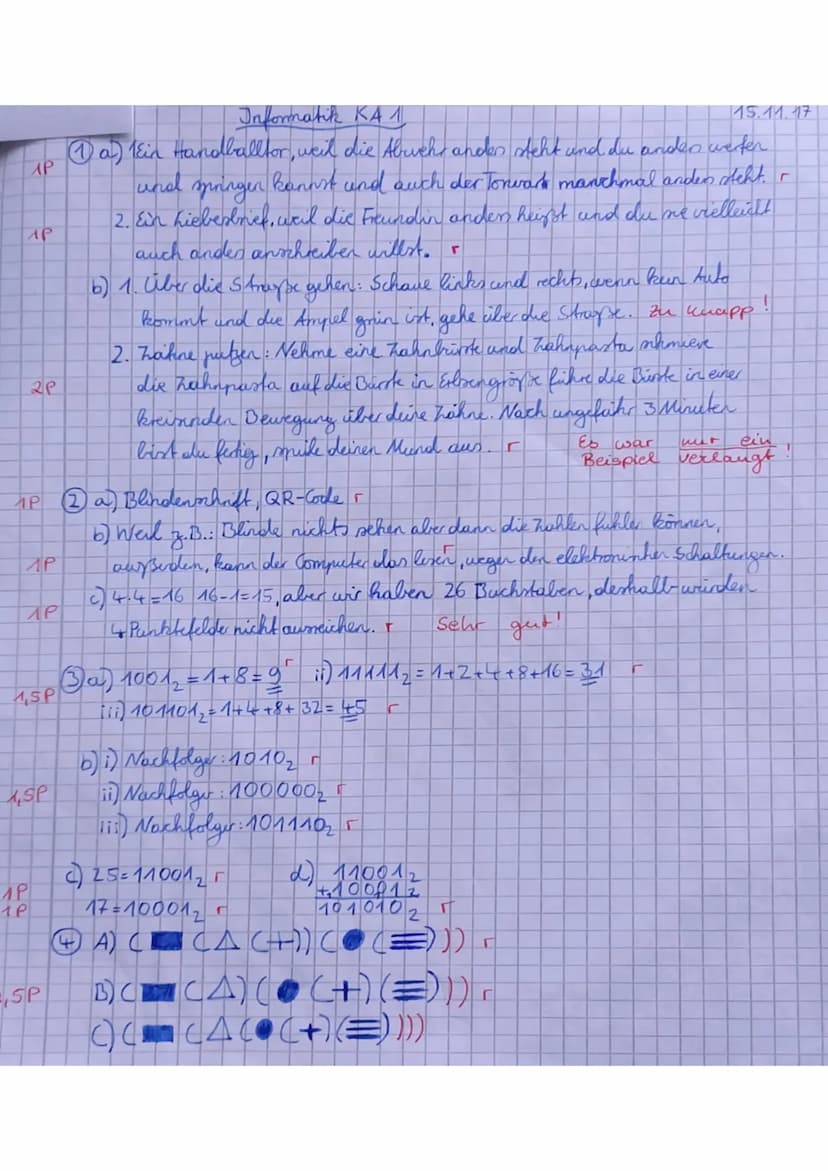 Informatik KA 1 15.11.17
1P ① a) 1 Ein Handballtor, weil die Abwehr anders steht und du anders werfen
und springen kannst und auch der Torwart manchmal anders steht. r
1P 2. Ein Liebesbrief, weil die Freundin anders heißt und du sie vielleicht
auch anders anschreiben willst. r
b) 1. Über die Straße gehen: Schaue links und rechts, wenn kein Auto
kommt und die Ampel grün ist, gehe über die Straße. zu knapp!
2. Zähne putzen: Nehme eine Zahnbürste und Zahnpasta schmiere
2P die Zahnpasta auf die Bürste in Erbsengröße führe die Bürste in einer
kreisenden Bewegung über deine Zähne. Nach ungefähr 3 Minuten
bist du fertig, spüle deinen Mund aus. r Es war nur ein
Beispiel verlangt!
1P ② a) Blindenschrift, QR-Code r
b) Weil z.B.: Blinde nichts sehen aber dann die Zahlen fühlen können,
1P außerdem, kann der Computer das lesen, wegen den elektronischen Schaltungen. r
c) 4·4=16 16-1=15, aber wir haben 26 Buchstaben, deshalb würden
1P 4 Punktefelde nicht ausreichen. r Sehr gut!
③ a) 1001₂ = 1+8 = 9 r ii) 11111₂ = 1+2+4+8+16 = 31 r
1,5P iii) 101101₂ = 1+4+8+32 = 45 r
b) i) Nachfolger: 1010₂ r
1,5P ii) Nachfolger: 100000₂ r
iii) Nachfolger: 101110₂ r
c) 25 = 11001₂ r d) 11001₂
1P +10001₂
1P 17 = 10001₂ r 101010₂ r
④ A) ( ( △ (+)) ( ● (≡))) r
,5P B) ( ( △) ( ● (+) (≡))) r
C) ( ( △ ( ● (+) (≡))))